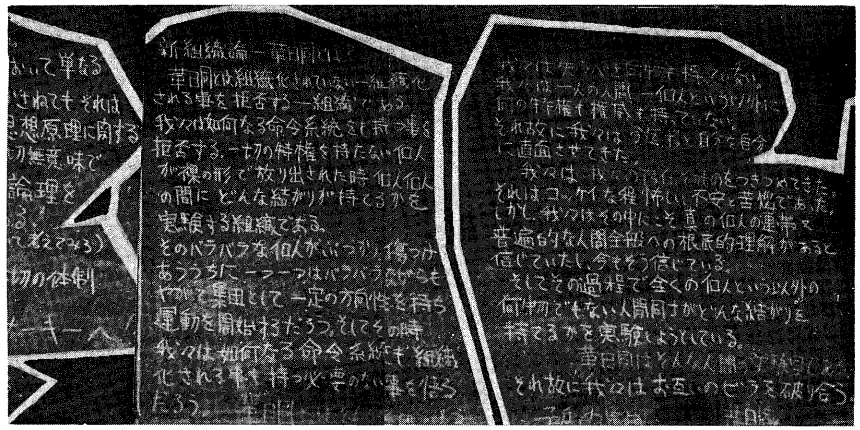 おいて単なる
さねても それは
思想原理に関する
切無意味で
論理を
る。
て考えてみろ)
切の体制
ーキーへ
新組織論―華明とは
華明とは組織化されていない一組織化
される事を拒否する一組織である。
我々は如何なる命令系統をも持つ事を
拒否する。一切の特権を持たない個人
が裸の形で放り出された時 個人個人
の間に どんな結がりが持てるかを
実験する組織である。
そのバラバラな個人がぶつかり、傷つけ
あううちに 一つ一つはバラバラながらも
やがて集団として 一定の方向性を持ち
運動を開始するだろう。そしてその時
我々は如何なる命令系統も 組織
化される事も持つ必要のない事を悟る
だろう
我々は
持っていない。
我々は一人の人間、一個人という以外に
何の特権も権威も持っていない。
それ故に我々は 自分を自分
に直面させてきた。
我々は のをつきつめてきた。
それはコッケイな程 怖しい不安と苦悩であった。
しかし 我々はその中にこそ真の個人の連帯と
普遍的な人間全般への根底的理解があると
信じていたし、今もそう信じている。
そしてその過程で全くの個人という以外の
何物でもない人間同士がどんな結がりを
持てるかを実験しようとしている。
それ故に我々はお互いのビラを破り合う。